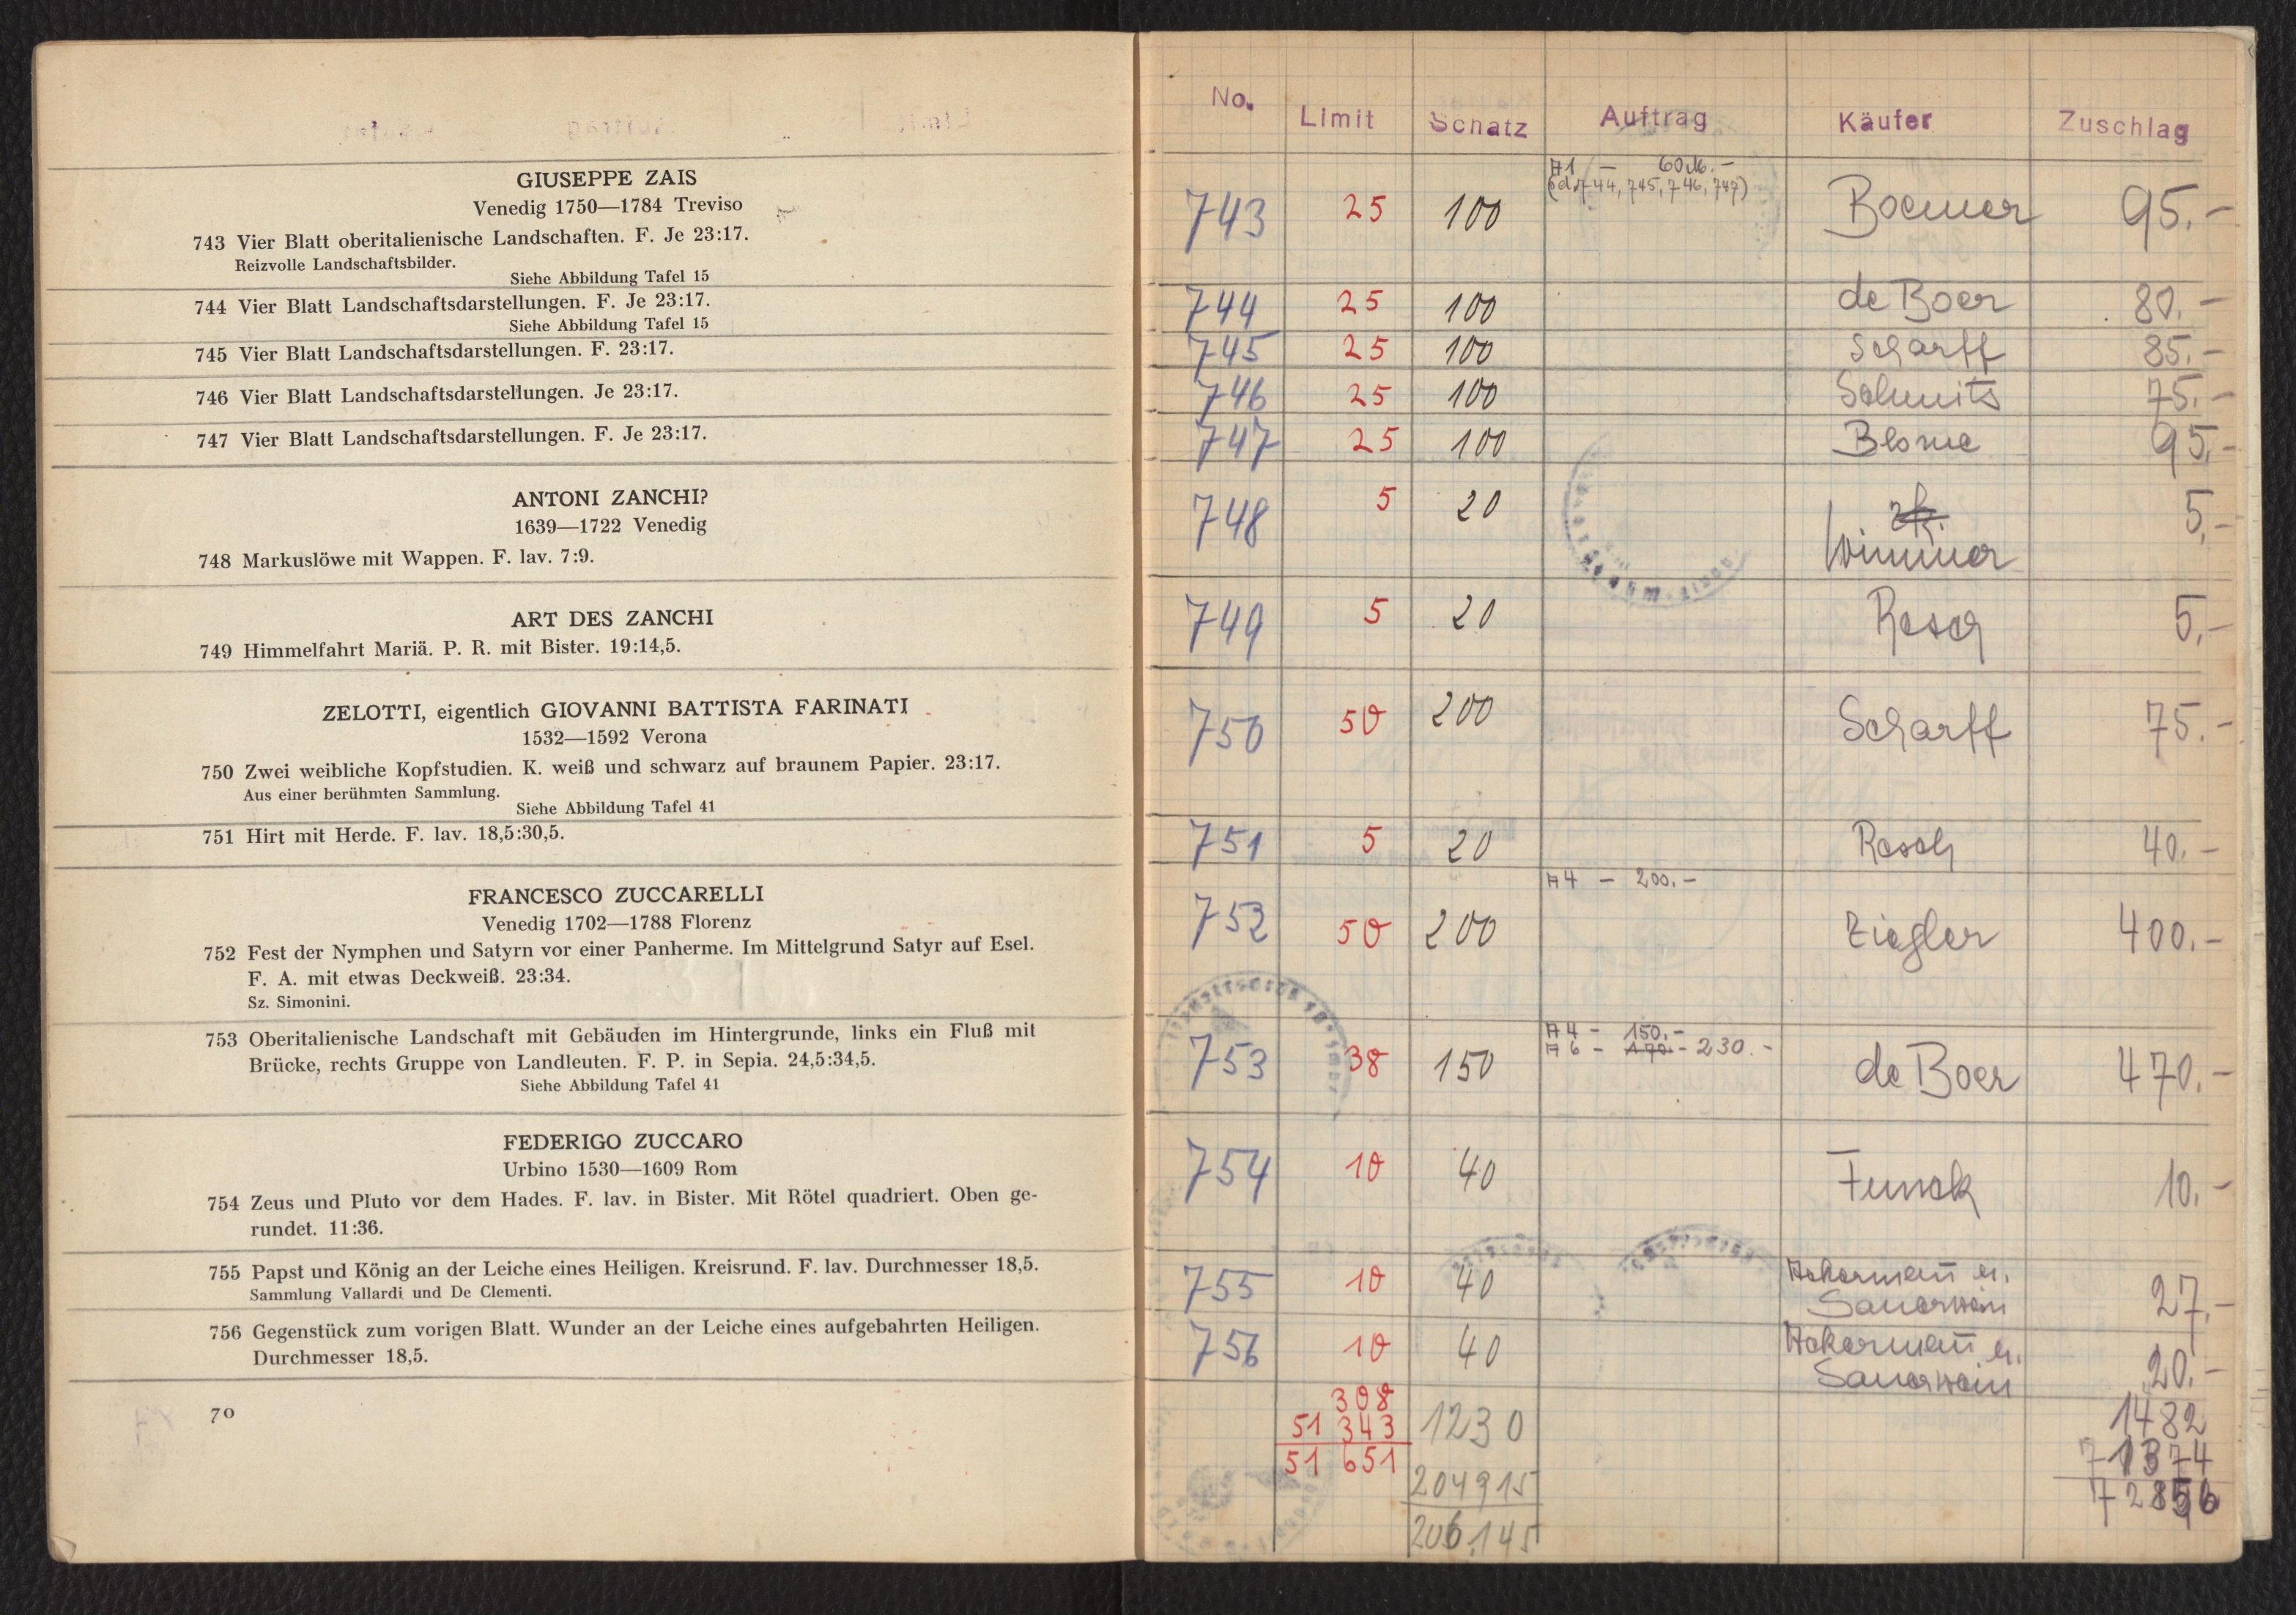 GIUSEPPE ZAIS
Venedig 1750—1784 Treviso
743 Vier Blatt oberitalienische Landschaften. F. Je 23:17.
Reizvolle Landschaftsbilder.
Siehe Abbildung Tafel 15
744 Vier Blatt Landschaftsdarstellungen. F. Je 23:17.
Siehe Abbildung Tafel 15
745 Vier Blatt Landschaftsdarstellungen. F. 23:17.
746 Vier Blatt Landschaftsdarstellungen. Je 23:17.
747 Vier Blatt Landschaftsdarstellungen. F. Je 23:17.
ANTONI ZANCHI?
1639—1722 Venedig
748 Markuslöwe mit Wappen. F. lav. 7:9.
ART DES ZANCHI
749 Himmelfahrt Mariä. P. R. mit Bister. 19:14,5.
ZELOTTI, eigentlich GIOVANNI BATTISTA FARINATI
1532—1592 Verona
750 Zwei weibliche Kopfstudien. K. weiß und schwarz auf braunem Papier. 23:17.
Aus einer berühmten Sammlung.
Siehe Abbildung Tafel 41
751 Hirt mit Herde. F. lav. 18,5:30,5.
FRANCESCO ZUCCARELLI
Venedig 1702—1788 Florenz
752 Fest der Nymphen und Satyrn vor einer Panherme. Im Mittelgrund Satyr auf Esel.
F. A. mit etwas Deckweiß. 23:34.
Sz. Simonini.
753 Oberitalienische Landschaft mit Gebäuden im Hintergrunde, links ein Fluß mit
Brücke, rechts Gruppe von Landleuten. F. P. in Sepia. 24,5:34,5.
Siehe Abbildung Tafel 41
FEDERIGO ZUCCARO
Urbino 1530—1609 Rom
754 Zeus und Pluto vor dem Hades. F. lav. in Bister. Mit Rötel quadriert. Oben ge-
rundet. 11:36.
755 Papst und König an der Leiche eines Heiligen. Kreisrund. F. lav. Durchmesser 18,5.
Sammlung Vallardi und De Clementi.
756 Gegenstück zum vorigen Blatt. Wunder an der Leiche eines aufgebahrten Heiligen.
Durchmesser 18,5.
70
No. Limit Schatz Auftrag Käufer Zuschlag
A1 — 60 M.—
(od. 744, 745, 746, 747)
743 25 100 Boerner 95.—
744 25 100 de Boer 80.—
745 25 100 Scharff 85.—
746 25 100 Schmits 75.—
747 25 100 Blome 95.—
748 5 20 Wimmer 5,—
749 5 20 Rosch 5,—
750 50 200 Scharff 75.—
751 5 20 Rosch 40.—
A4 — 200.—
752 50 200 Ziegler 400.—
A4 — 150.—
A6 — 170.— 230.—
753 38 150 de Boer 470.—
754 10 40 Funck 10.—
755 10 40 Ackermann u. Sauerwein 27,—
756 10 40 Ackermann u. Sauerwein 20.—
308 1230 1482
51 343 204915 71374
51 651 206.145 72856